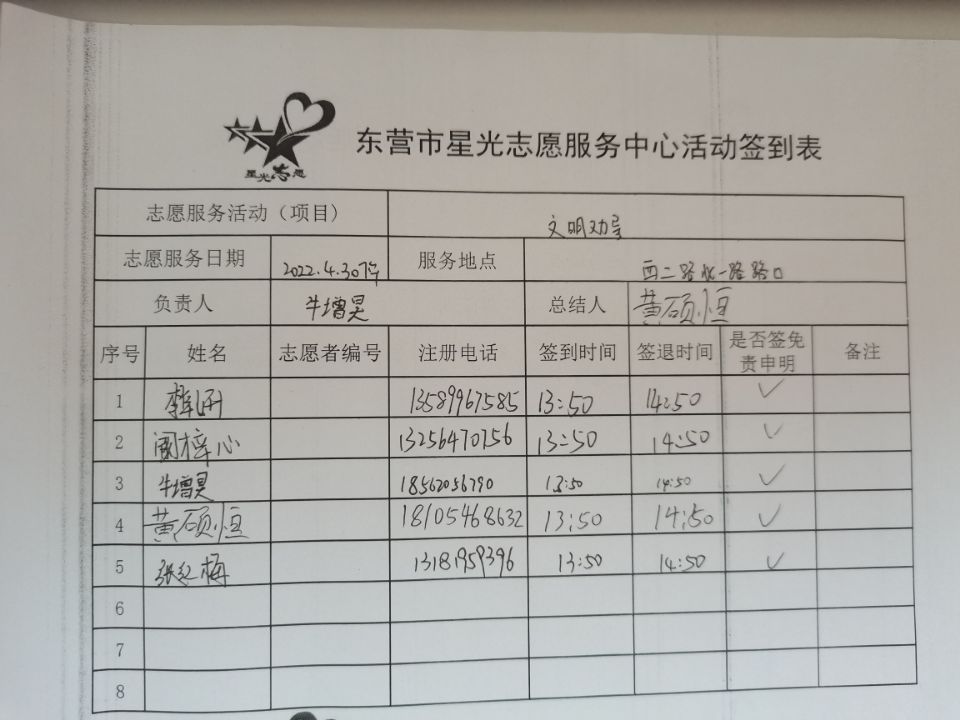 星光志愿
东营市星光志愿服务中心活动签到表
志愿服务活动（项目） 文明劝导
志愿服务日期 2022.4.30下午 服务地点 西二路 一路路口
负责人 牛增昊 总结人 黄硕恒
序号 姓名 志愿者编号 注册电话 签到时间 签退时间 是否签免责申明 备注
1 13589967585 13:50 14:50 ✓
2 阚梓心 13256470756 13:50 14:50 ✓
3 牛增昊 18562056790 13:50 14:50 ✓
4 黄硕恒 18105468632 13:50 14:50 ✓
5 张红梅 13181959396 13:50 14:50 ✓
6
7
8